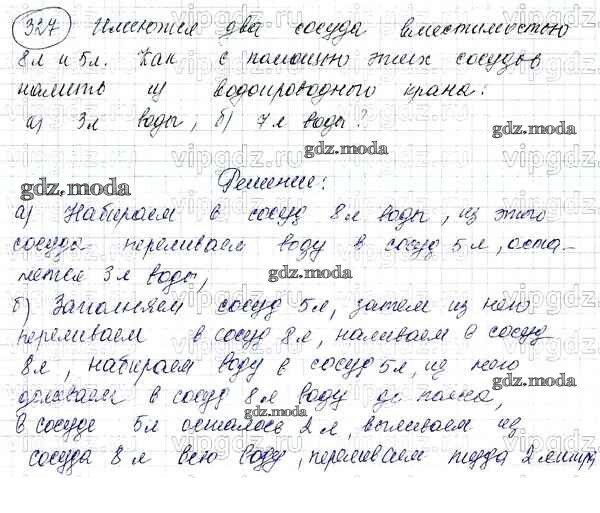 327 Имеются два сосуда вместимостью
8л и 5л. Как с помощью этих сосудов
налить из водопроводного крана:
а) 3л воды, б) 7л воды?
gdz.moda
gdz.moda
Решение:
а) Набираем в сосуд 8л воды, из этого
сосуда переливаем воду в сосуд 5л, оста-
нется 3л воды,
gdz.moda
б) Заполняем сосуд 5л, затем из него
gdz.moda
переливаем в сосуд 8л, наливаем в сосуд
8л, набираем воду в сосуд 5л, из него
gdz.moda
доливаем в сосуд 8л воду до полна,
gdz.moda
в сосуде 5л осталось 2л, выливаем из
сосуда 8л всю воду, переливаем туда 2 литра
vipgdz.ru